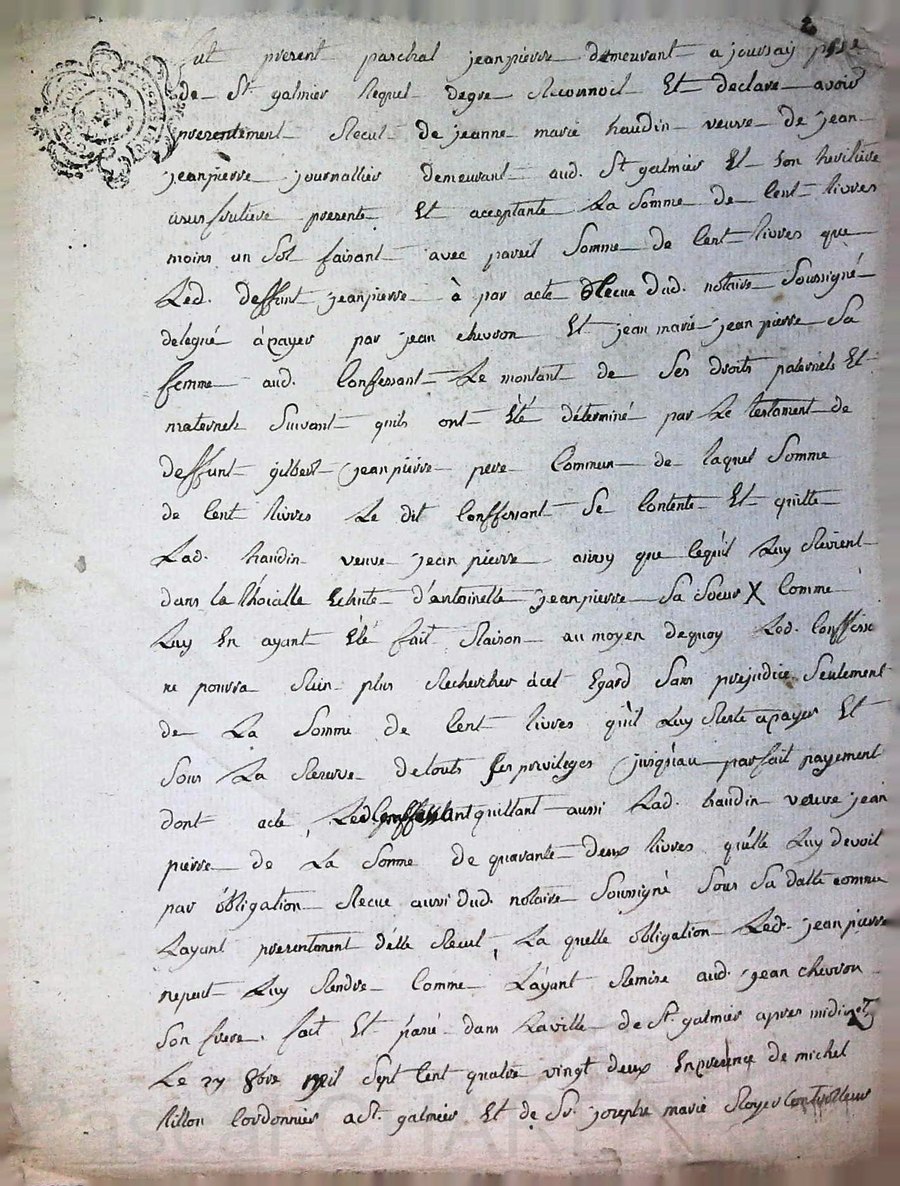 fut present paschal jeanpierre demeurant a joursay psse
de St galmier lequel degre Reconnoit Et declare avoir
presentement Recut de jeanne marie haudin veuve de jean
jeanpierre journallier demeurant aud. St galmier Et son heritiere
usufrutiere presente Et acceptante La Somme de Cent livres
moins un Sol faisant avec pareil Somme de Cent livres que
Led. deffunt jeanpierre à par acte Recue dud. notaire Soussigné
delegué àpayer par jean chevron Et jean marie jean pierre Sa
femme aud. Confessant Le montant de Ses droits paternels Et
maternels Suivant quils ont Eté déterminé par Le testament de
deffunt gilbert jeanpierre pere Commun de laquel Somme
de Cent livres Le dit Conffessant Se Contente Et quitte
Lad. haudin veuve jean pierre ainsy que cequil Luy Revient
dans la Echute d'antoinette jeanpierre Sa Soeur X Comme
Luy En ayant Eté fait Raison au moyen dequoy Led. Conffesse
ne pourra Rien plus Rechercher àcet Egard Sans prejudice Seulement
de La Somme de Cent livres qu'il Luy Reste apayer Et
Sous La Reserve detouts Ses privileges jusqu'au parfait payement
dont acte, Led Conffessant quittant aussi Lad. haudin veuve jean
pierre de La Somme de quarante deux livres qu'elle Luy devoit
par obligation Recue aussi dud. notaire Soussigné Sous Sa datte comme
Layant presentment d'elle Recut, La quelle obligation Led. jean pierre
nepeut Luy Rendre Comme L'ayant Remise aud. jean chevron
Son frere. fait Et passé dans Laville de St galmier apres midi
Le 27 8bre mil Sept Cent quatre vingt deux Enpresence de michel
Cordonnier a St. galmier Et de Sr. josephe marie Royer Controlleur